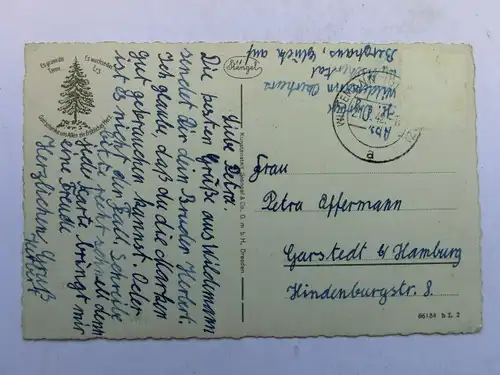 Es grünt die
Tanne.
Es wachse das
Erz.
Gott schenke uns Allen ein fröhliches Herz.
Liebe Petra.
Die besten Grüße aus Wildemann
sendet Dir dein Bruder Herbert.
Ich glaube, daß du die Marken
gut gebrauchen kannst. Oder
ist es nicht der Fall. Schreibe
bitte recht schnell denn
jede Karte bringt mir
eine Freude
Herzlichen Gruß
Herbert
Stengel
Kunstanstalt Stengel & Co. G. m. b. H., Dresden
Abs.
Wildemann Oberharz
Berghaus, Glück auf
WILDEMANN
a
Frau
Petra Offermann
Garstedt b/ Hamburg
Hindenburgstr. 8.
86184 b Z. 2